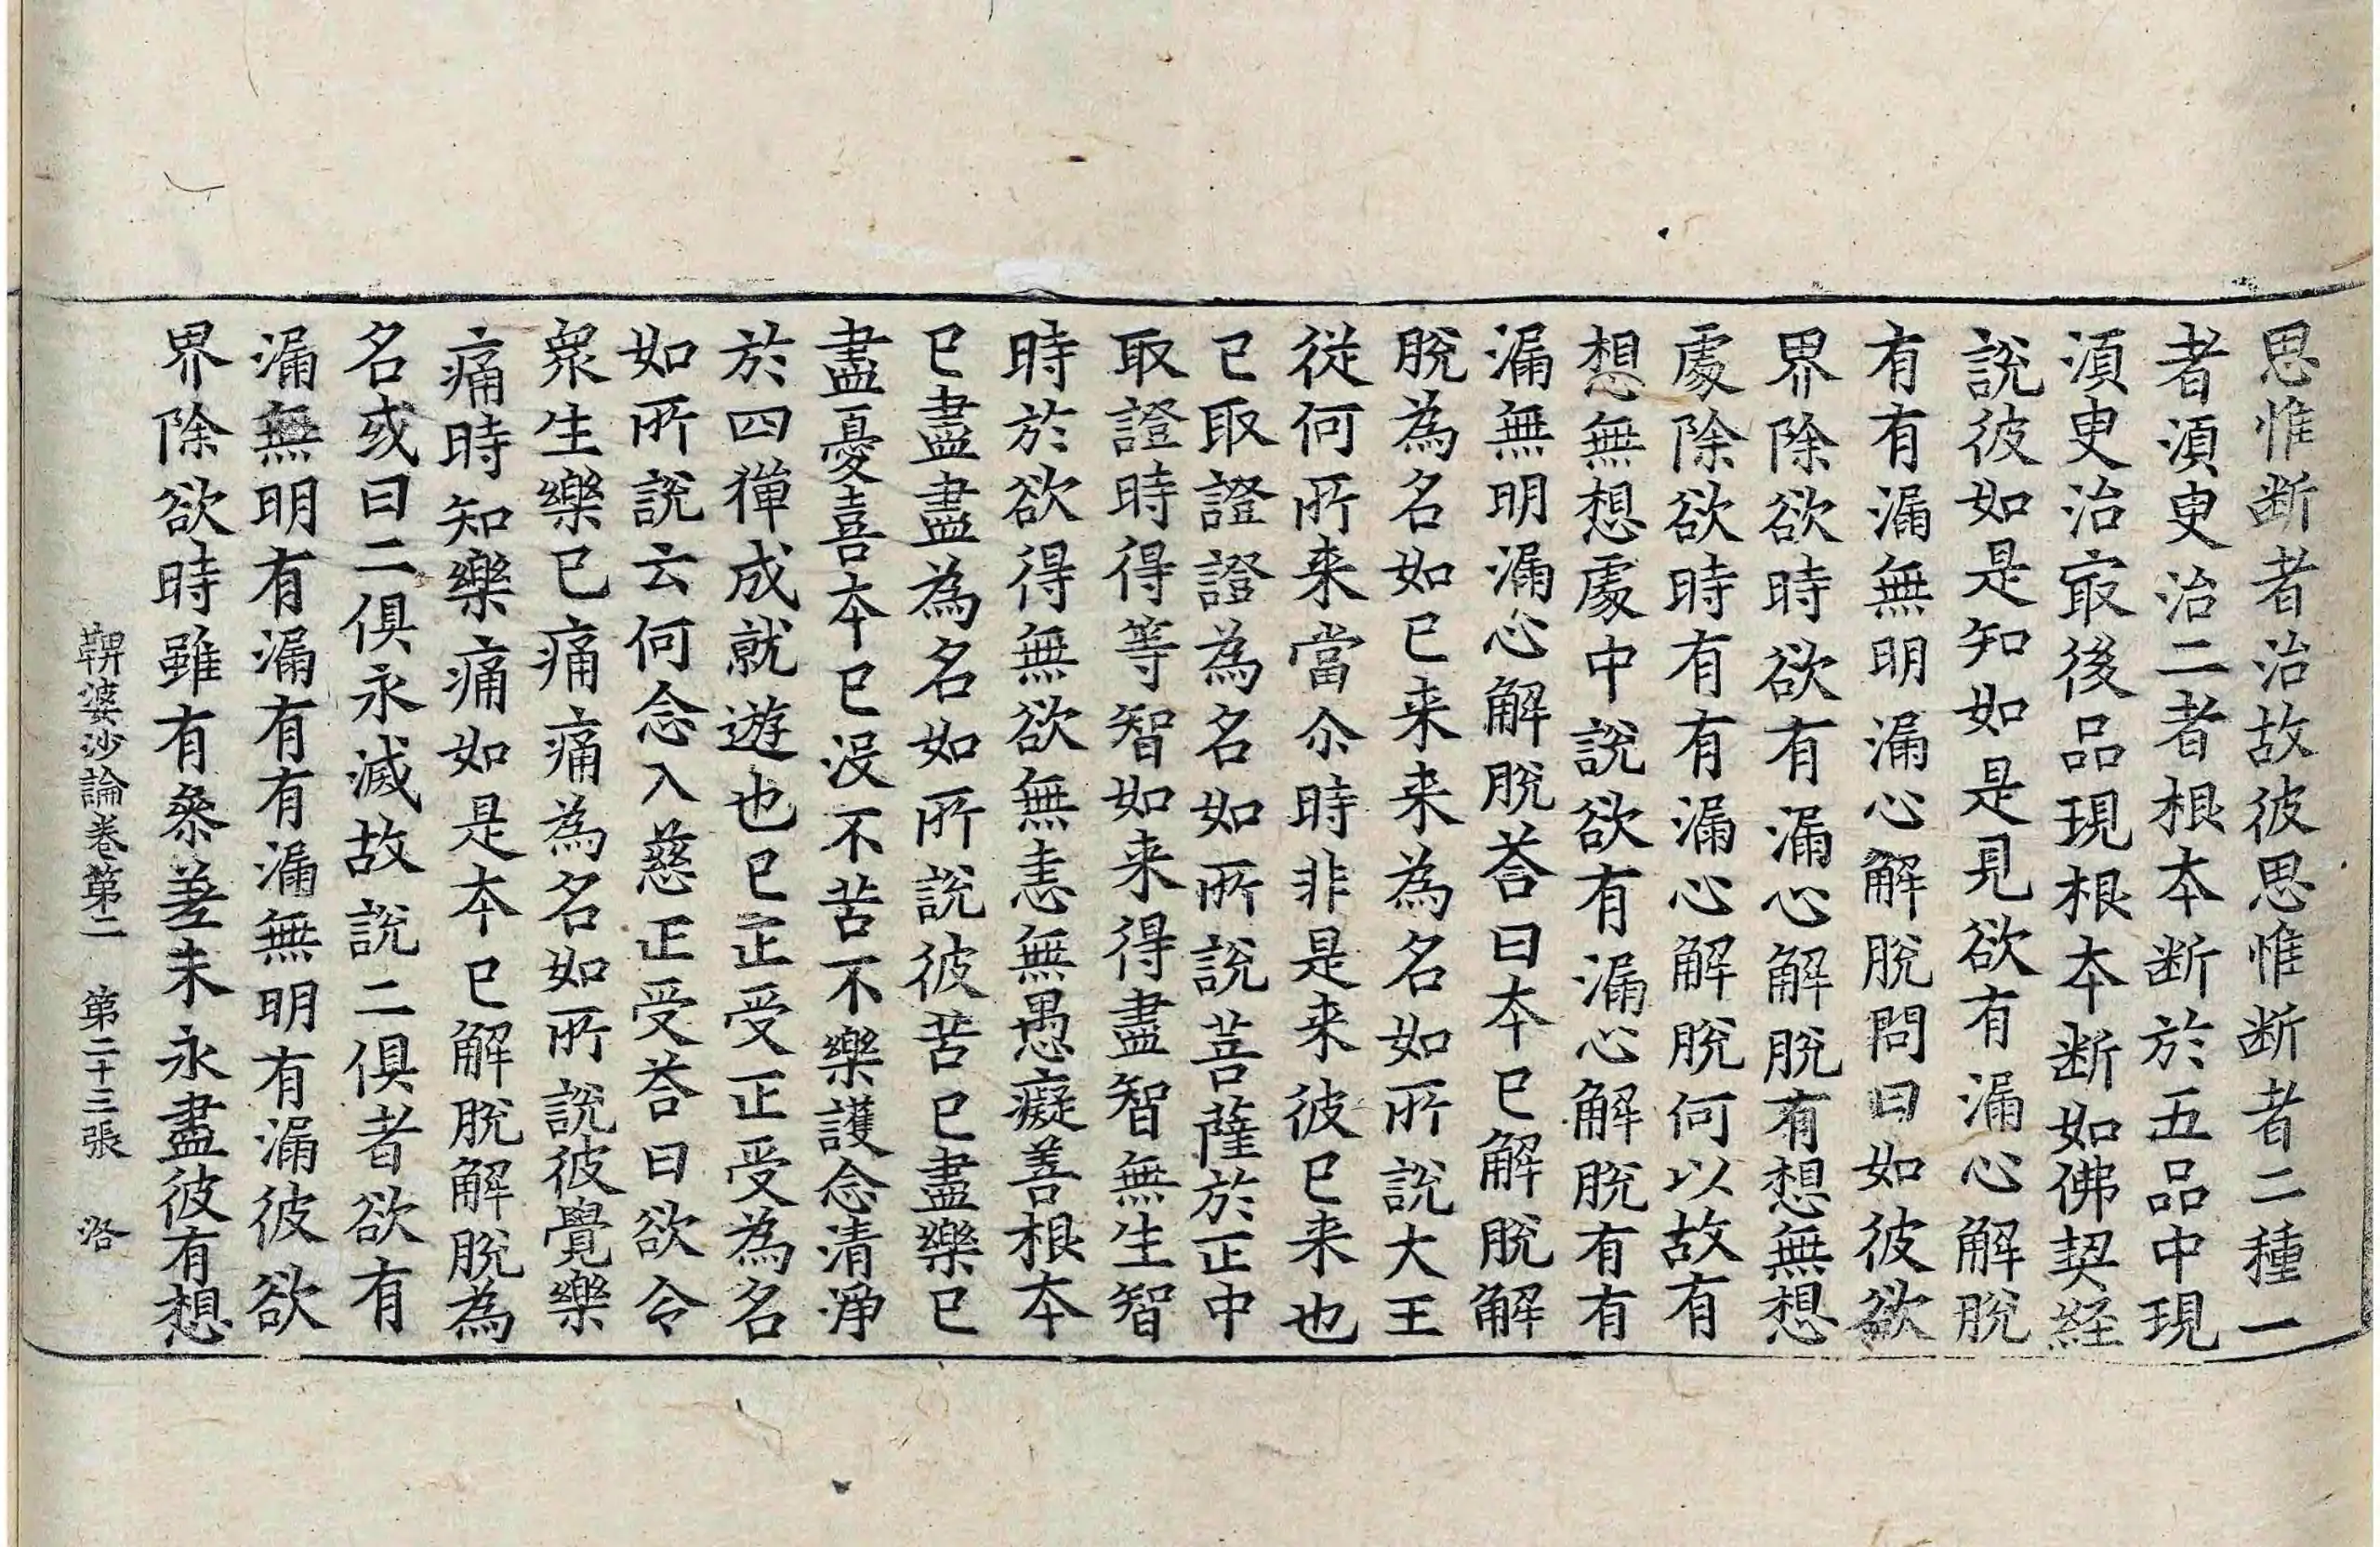 思惟断者治故彼思惟断者二種一
者湏更治二者根夲断於五品中現
湏更治㝡後品現根夲断如佛契経
說彼如是知如是見欲有漏心解脫
有有漏無明漏心解脫問曰如彼欲
界除欲時欲有漏心解脫有想無想
處除欲時有有漏心解脫何以故有
想無想處中說欲有漏心解脫有有
漏無明漏心解脫荅曰夲已解脫解
脫為名如已来来為名如所說大王
從何所来當尒時非是来彼已来也
已取證證為名如所說菩薩於正中
取證時得等智如来得盡智無生智
時於欲得無欲無恚無愚癡善根夲
已盡盡為名如所說彼苦已盡樂已
盡憂喜夲已沒不苦不樂護念清淨
於四禪成就遊也已正受正受為名
如所說云何念入慈正受荅曰欲令
衆生樂已痛痛為名如所說彼覺樂
痛時知樂痛如是夲已解脫解脫為
名或曰二俱永滅故說二俱者欲有
漏無明有漏有有漏無明有漏彼欲
界除欲時雖有叅差未永盡彼有想
鞞婆沙論卷第二　第二十三張　洛